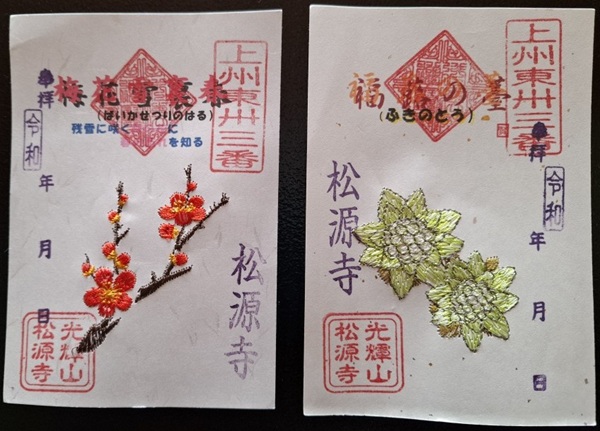 上州東卅三番
奉拝
梅花雪裏春
(ばいかせつりのはる)
残雪に咲く に
を知る
令和
年
月
日
松源寺
光輝山
松源寺
上州東卅三番
福 の薹
(ふきのとう)
奉拝
令和
年
月
日
松源寺
光輝山
松源寺